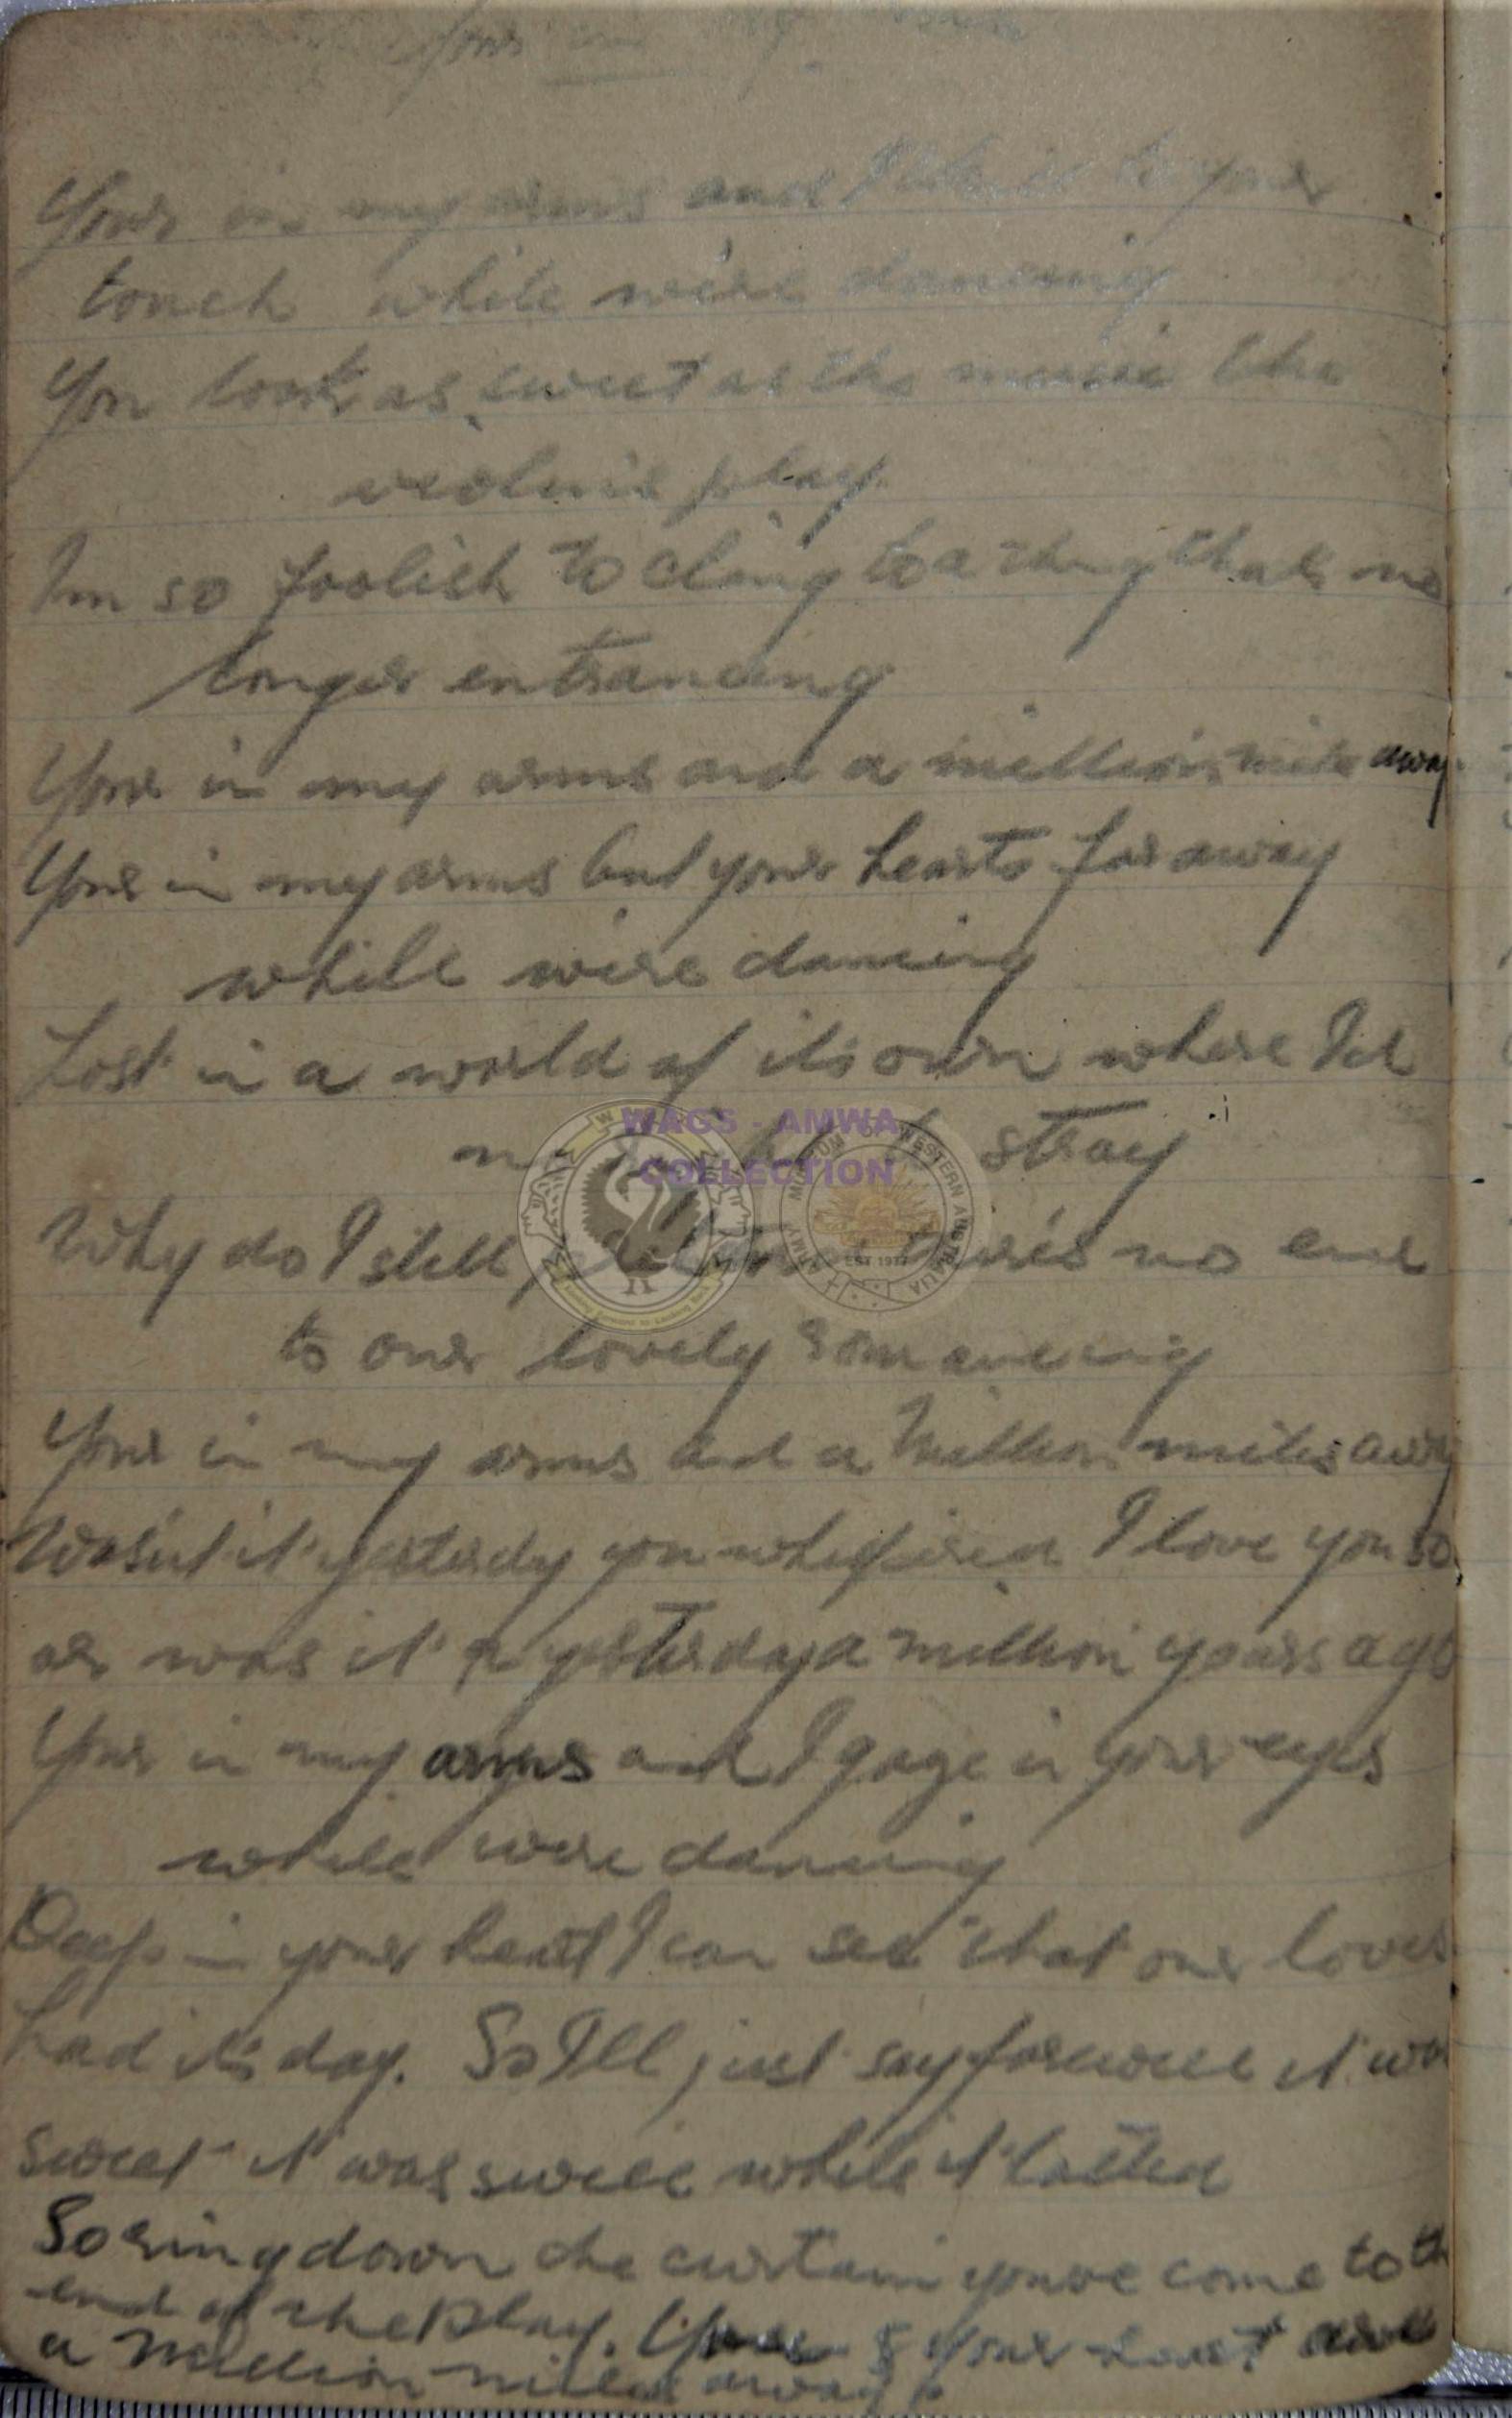 Your in my arms
Your in my arms and I thrill to your
touch while we're dancing
You look as sweet as the music the
violins play
Im so foolish to cling to a thing thats no
longer entrancing
Your in my arms and a million miles away
Your in my arms but your hearts far away
while we're dancing
Lost in a world of its own where I'd
stray
Why do I still there's no end
to our lovely romancing
Your in my arms and a million miles away
Wasn't it yesterdy you whispered I love you so
or was it a yesterday a million years ago
Your in my arms and I gaze in your eyes
while we're dancing
Deep in your heart I can see that our loves
had its day. So Ill just say farewell it was
sweet it was swell while it lasted
So ring down the curtain youve come to the
end of the play. & your heart are
a million miles away.
WAGS - AMWA
COLLECTION
MUSEUM OF WESTERN AUSTRALIA
ARMY
EST 1977